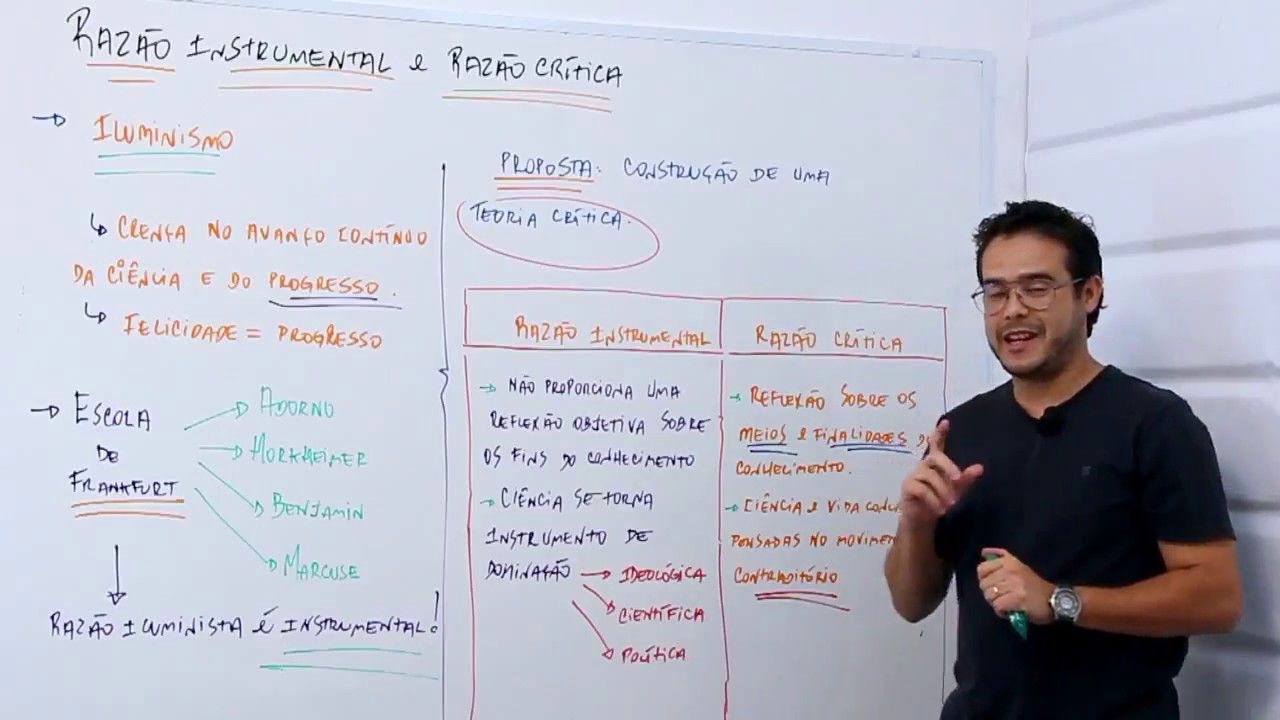 RAZÃO INSTRUMENTAL e RAZÃO CRÍTICA
→ ILUMINISMO
↳ CRENÇA NO AVANÇO CONTÍNUO
DA CIÊNCIA E DO PROGRESSO.
↳ FELICIDADE = PROGRESSO
→ ESCOLA
DE
FRANKFURT
→ ADORNO
→ HORKHEIMER
→ BENJAMIN
→ MARCUSE
RAZÃO ILUMINISTA é INSTRUMENTAL!
PROPOSTA: CONSTRUÇÃO DE UMA
TEORIA CRÍTICA.
RAZÃO INSTRUMENTAL
→ NÃO PROPORCIONA UMA
REFLEXÃO OBJETIVA SOBRE
OS FINS DO CONHECIMENTO
→ CIÊNCIA SE TORNA
INSTRUMENTO DE
DOMINAÇÃO → IDEOLÓGICA
→ CIENTÍFICA
→ POLÍTICA
RAZÃO CRÍTICA
→ REFLEXÃO SOBRE OS
MEIOS e FINALIDADES
CONHECIMENTO.
→ CIÊNCIA e VIDA
PENSADAS NO
CONTRADITÓRIO